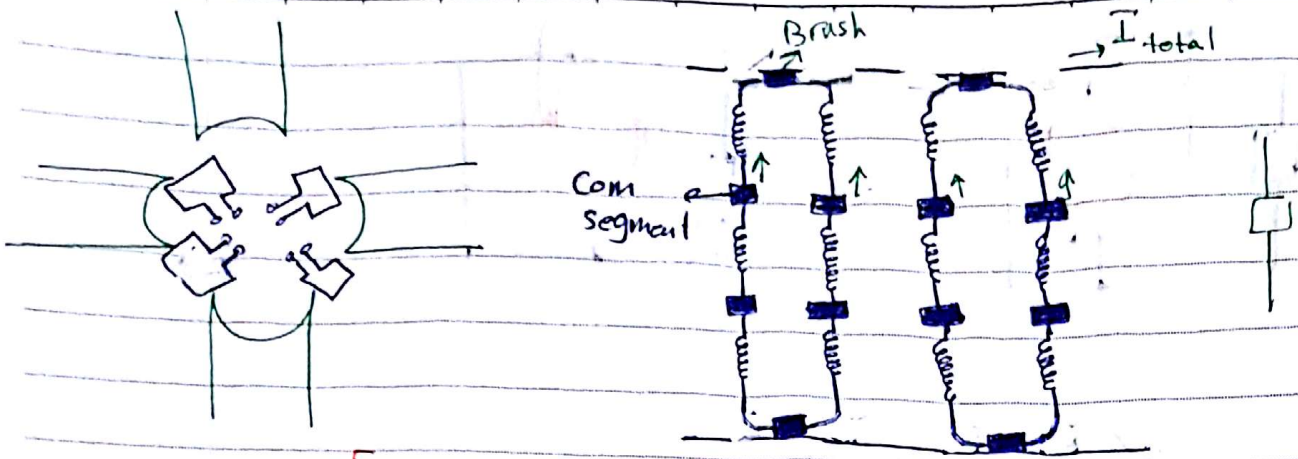 Brush
I total
Com
segment